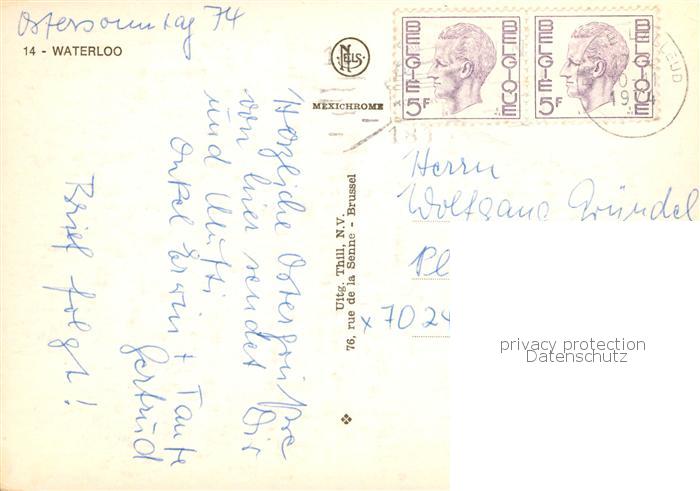 Ostersonntag 74
14 - WATERLOO
NELS
MEXICHROME
BELGIE BELGIQUE
5F
BELGIE BELGIQUE
5F
Herzliche Ostergrüße
von hier sendet Dir
und Mutti
Onkel Erwin + Tante
Gertrud
Brief folgt!
Uitg. Thill, N.V.
76, rue de la Senne - Brussel
Herrn
Wolfgang Gründel
Pl
x 7024
privacy protection
Datenschutz